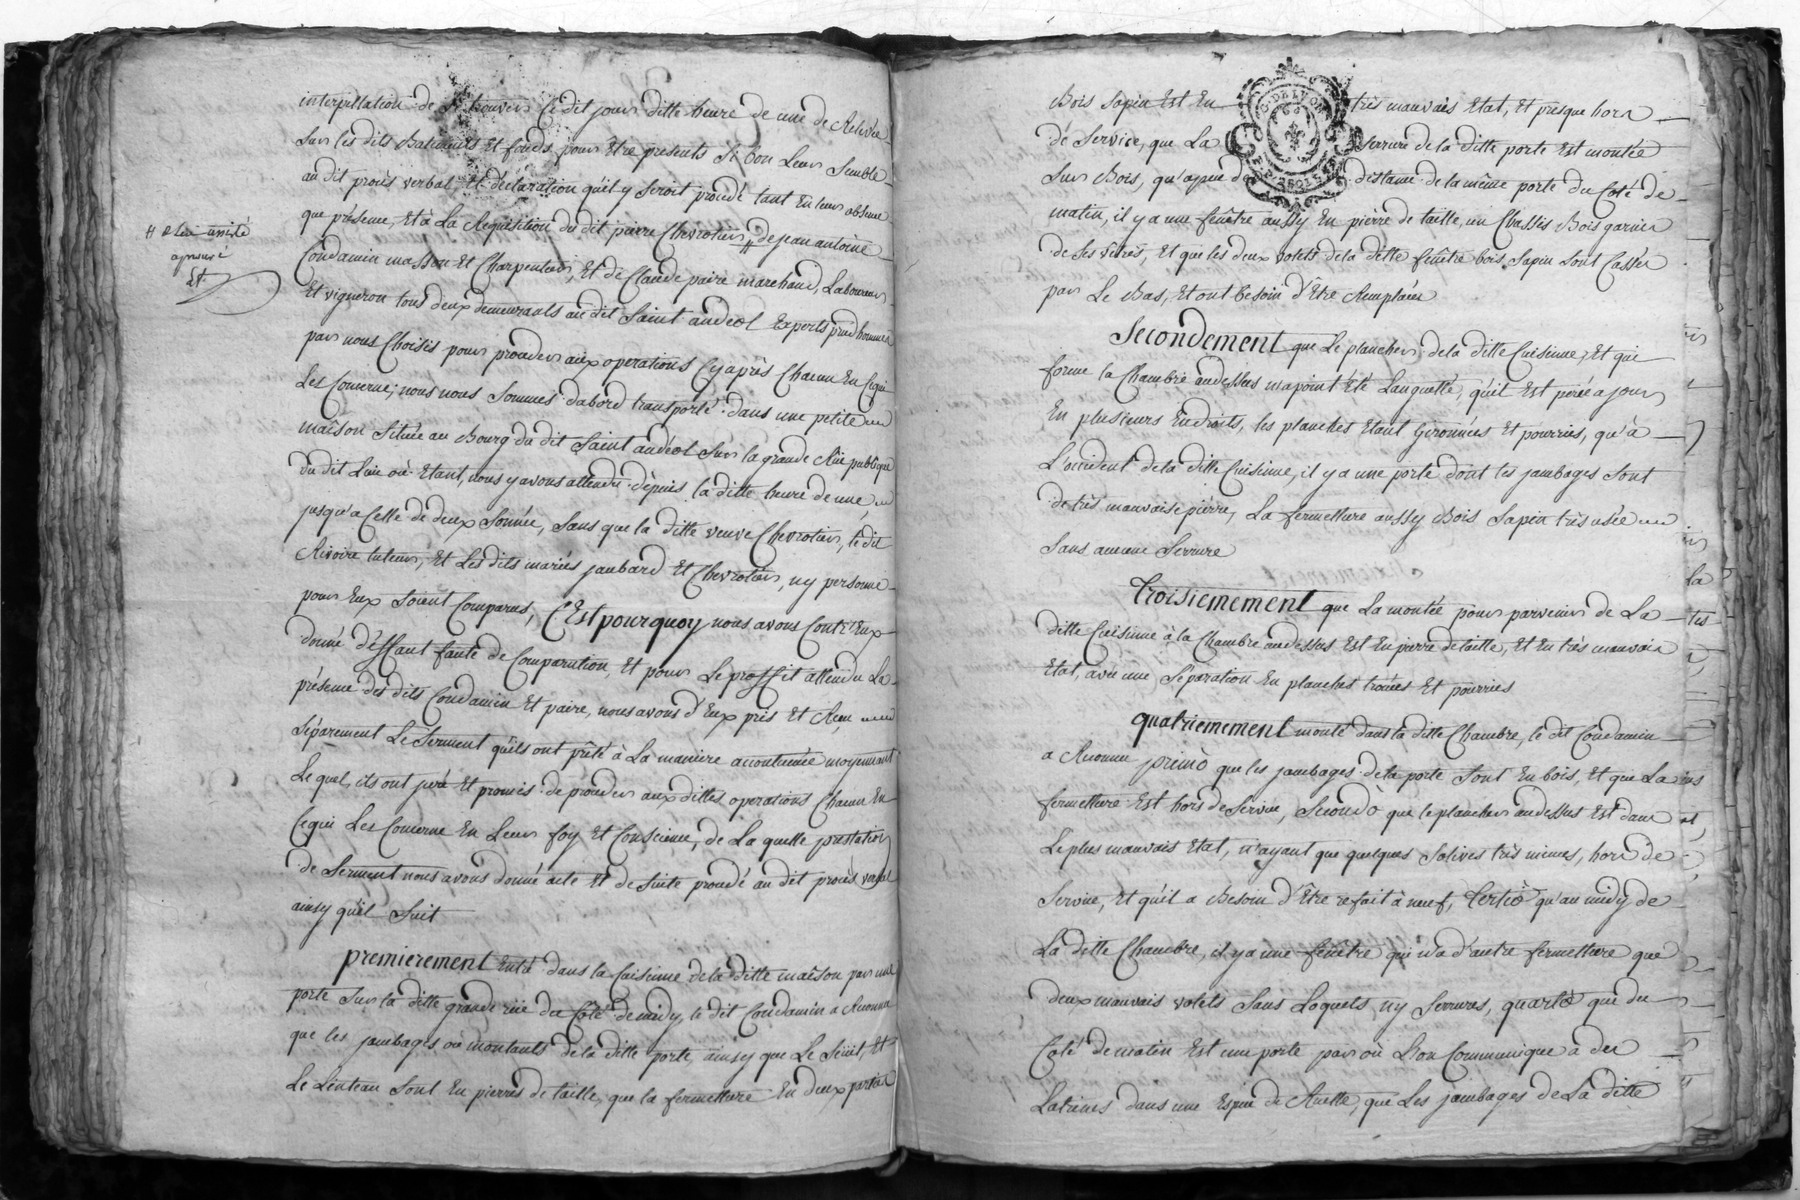 interpellation de s'y trouver Ce dit jour ditte heure de une de Relevée
Sur les dits Batiments Et fonds pour Etre presents Si bon Leur Semble
au dit procès verbal, Et déclaration qu'il y Seroit procédé tant En leur absence
que présence, Et à La Requisition du dit paire Chevrotier, # de jean antoine
# de lui assisté
aprouvé
Condamin masson Et Charpentier, Et de Claude paire marchand, Laboureur
Et vigneron tous deux demeurants au dit Saint andéol Experts prud'hommes
par nous Choisis pour proceder aux operations Cy après Chacun En Ce qui
Les Concerne; nous nous Sommes d'abord transporté dans une petite
maison Située au Bourg du dit Saint andéol Sur la grande Rüe publique
du dit Lieu où Etant, nous y avons attendu depuis la ditte heure de une
jusqu'a Celle de deux Sonnée, Sans que la ditte veuve Chevrotier, le dit
Rivoire tuteur, Et Les dits mariés jaubard Et Chevrotier, ny personne
pour Eux Soient Comparus, C'Est pourquoy nous avons Contr'Eux
donné déffaut faute de Comparution, Et pour Le proffit attendu La
présence des dits Condamin Et paire, nous avons d'Eux pris Et Recu
Séparement Le Serment qu'ils ont prêté à La maniere accoutumée moyennant
Le quel, ils ont juré Et promis de proceder aux dittes operations Chacun En
Ce qui Les Concerne En Leur foy Et Conscience, de La quelle prestation
de Serment nous avons donné acte Et de Suite procedé au dit procès verbal
ainsy qu'il Suit
premierement Entré dans la Cuisinne de la ditte maison par une
porte Sur la ditte grande rüe du Côté de midy, le dit Condamin a Reconnu
que les jambages où montants de la ditte porte, ainsy que Le Seüil, Et
Le Linteau Sont En pierres de taille, que la fermetture En deux parties
Bois Sapin Est En très mauvais Etat, Et presque hors
de Service, que La Serrure de la ditte porte Est montée
Sur Bois, qu'a peu de distance de la même porte du Coté de
matin, il y a une fenêtre aussy En pierre de taille, un Chassis Bois garnie
de Ses vitres, Et que les deux volets de la ditte fenêtre bois Sapin Sont Cassés
par Le Bas, Et ont besoin d'Etre Remplacés
Secondement que Le plancher de la ditte Cuisinne, Et qui
forme la Chambre au dessus n'a point Eté Languetté, qu'il Est percé a jour
En plusieurs Endroits, les planches Etant Gironnées Et pourries, qu'à
L'occident de la ditte Cuisinne, il y a une porte dont les jambages Sont
de très mauvaise pierre, La fermetture aussy Bois Sapin très usée
Sans aucune Serrure
Troisiemement que La montée pour parvenir de La
ditte Cuisinne à la Chambre au dessus Est En pierre de taille, Et En très mauvais
Etat, avec une Séparation En planches trouées Et pourries
quatriemement monté dans la ditte Chambre, le dit Condamin
a Reconnu primò que les jambages de la porte Sont En bois, Et que La
fermetture Est hors de Service, Secondò que le plancher au dessus Est dans
Le plus mauvais Etat, n'ayant que quelques Solives très minces, hors de
Service, Et qu'il a Besoin d'Être refait à neuf, Tertiò qu'au midy de
La ditte Chambre, il y a une fenêtre qui n'a d'autre fermetture que
deux mauvais volets Sans Loquets, ny Serrures, quartò que du
Coté de matin Est une porte par où L'on Communique à des
Latrines dans une Espece de Ruelle, que Les jambages de La ditte